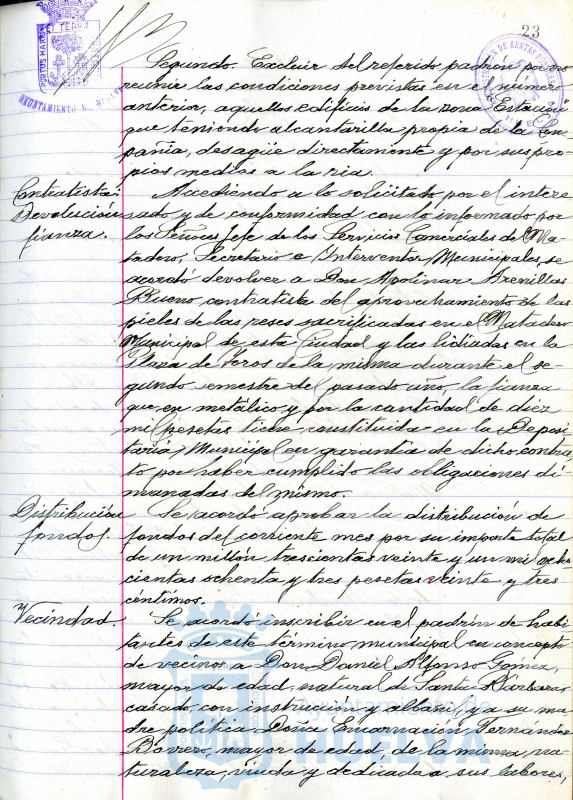 23
Segundo. Excluir del referido padrón por no
reunir las condiciones previstas en el número
anterior, aquellos edificios de la zona "Estación"
que teniendo alcantarilla propia de la Com-
pañia, desagüe directamente y por sus pro-
pios medios a la ria.
Contratistas:
Devolución
fianza.
Accediendo a lo solicitado por el intere
sado y de conformidad con lo informado por
los Señores Jefe de los Servicios Comerciales de Ma-
tadero, Secretario e Interventor Municipales, se
acordó devolver a Don Apolinar Arenillas
Bueno contratista del aprovechamiento de las
pieles de las reses sacrificadas en el Matadero
Municipal de esta Ciudad y las lidiadas en la
Plaza de Toros de la misma durante el se-
gundo semestre del pasado año, la fianza
que en metálico y por la cantidad de diez
mil pesetas tiene constituida en la Deposi
taria Municipal en garantia de dicho contra
to por haber cumplido las obligaciones di-
manadas del mismo.
Distribución
fondos.
Se acordó aprobar la distribución de
fondos del corriente mes por su importe total
de un millón trescientas veinte y un mil ocho
cientas ochenta y tres pesetas veinte y tres
céntimos.
Vecindad.
Se acordó inscribir en el padrón de habi
tantes de este término municipal en concepto
de vecinos a Don Daniel Alfonso Gómez,
mayor de edad, natural de Santa Bárbara
casado, con instrucción y albañil y a su ma
dre politica Doña Encarnación Fernández
Borrero, mayor de edad, de la misma na-
turaleza, viuda y dedicada a sus labores,
Ayuntamiento de
HUELVA